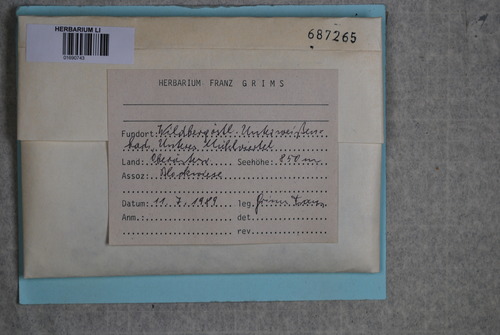 HERBARIUM LI
01690743
687265
HERBARIUM FRANZ GRIMS
Fundort: Wildberg östl. Unterweißen-
Unteres Mühlviertel
Land: Oberösterr. Seehöhe: 850 m
Assoz:
Datum: 11. 7. 1989 leg. Grims Franz
Anm.: det.
rev.